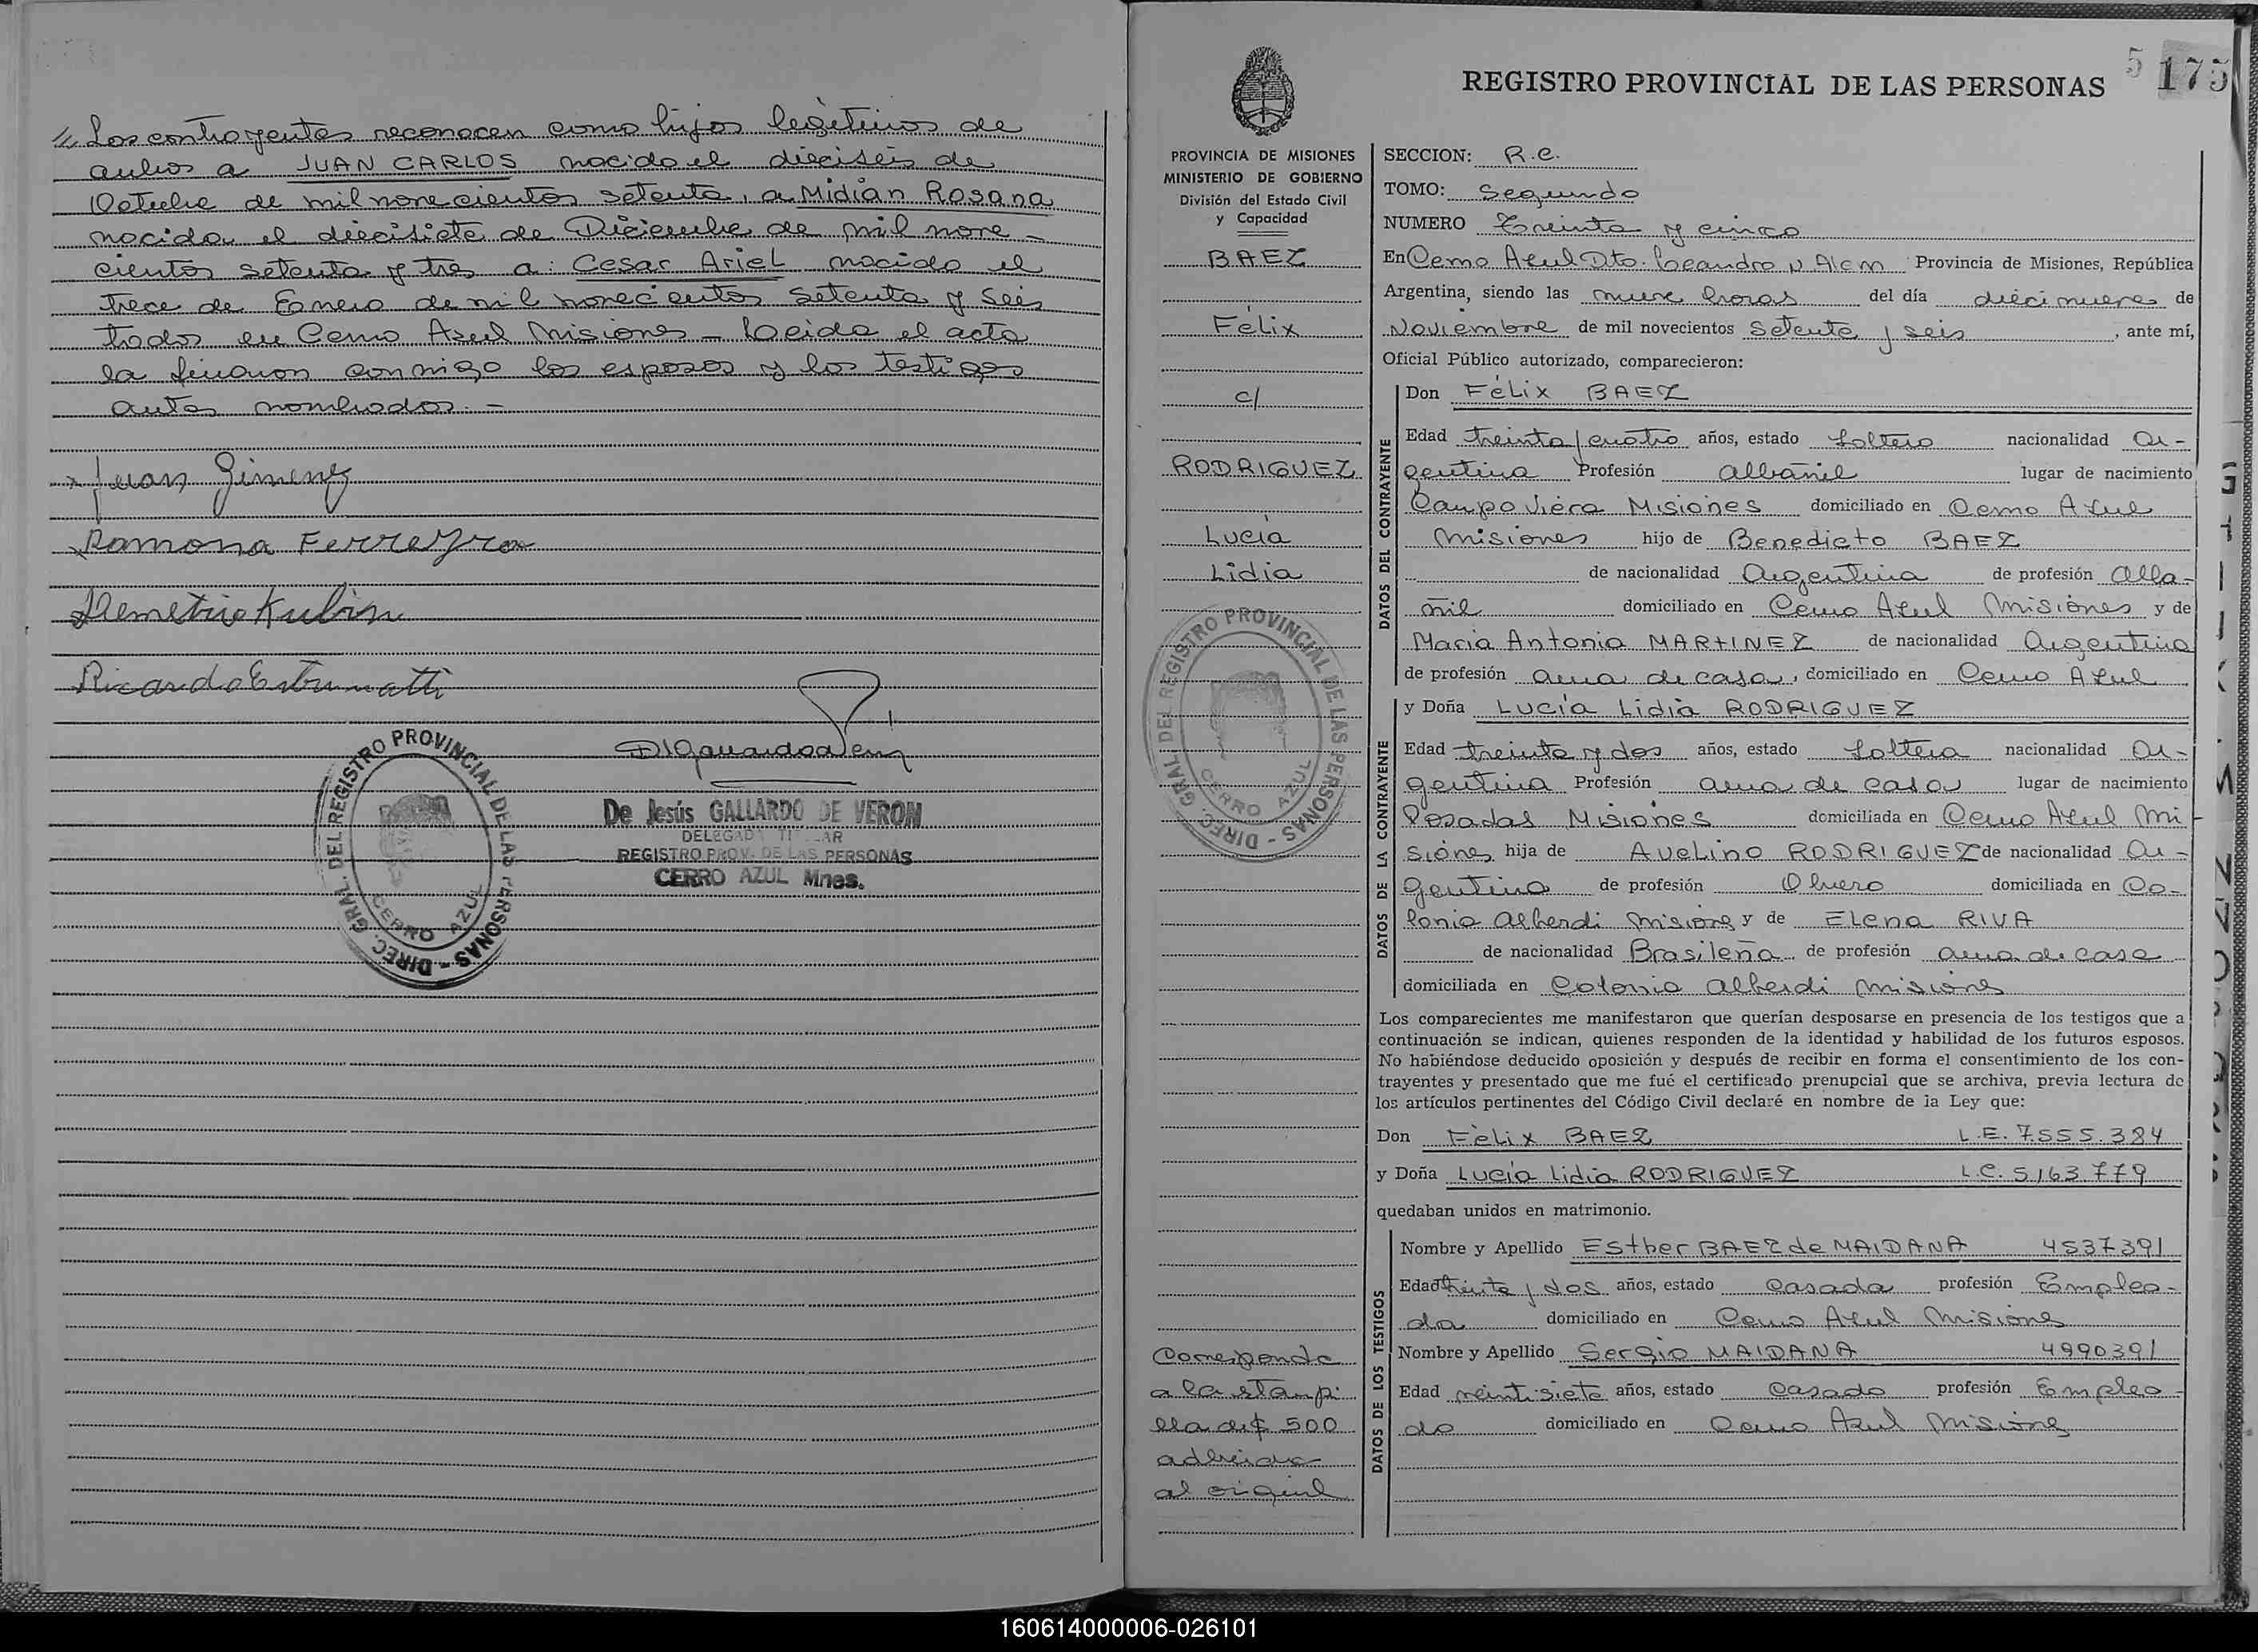 // Los contrayentes reconocen como hijos legítimos de
ambos a JUAN CARLOS nacido el dieciseis de
Octubre de mil novecientos setenta, a Midian Rosana
nacida el diecisiete de Diciembre de mil nove-
cientos setenta y tres a: Cesar Ariel nacido el
trece de Enero de mil novecientos setenta y seis
todos en Cerro Azul Misiones - Leida el acta
la firman conmigo los esposos y los testigos
antes nombrados. -
x Juan Gimenez
Ramona Ferreyra
Demetrio Kubin
Ricardo
DIREC. GRAL. DEL REGISTRO PROVINCIAL DE LAS PERSONAS -
CERRO AZUL
De Jesús GALLARDO DE VERON
DELEGADA TITULAR
REGISTRO PROV. DE LAS PERSONAS
CERRO AZUL Mnes.
5 175
REGISTRO PROVINCIAL DE LAS PERSONAS
PROVINCIA DE MISIONES
MINISTERIO DE GOBIERNO
División del Estado Civil
y Capacidad
BAEZ
Félix
c/
RODRIGUEZ
Lucía
Lidia
DIREC. GRAL. DEL REGISTRO PROVINCIAL DE LAS PERSONAS -
CERRO AZUL
Corresponde
a la estampi
lla de $ 500
adherida
al original
SECCION: R.C.
TOMO: Segundo
NUMERO Treinta y cinco
En Cerro Azul Dto. Leandro N Alem Provincia de Misiones, República
Argentina, siendo las nueve horas del día diecinueve de
Noviembre de mil novecientos setenta y seis, ante mí,
Oficial Público autorizado, comparecieron:
DATOS DEL CONTRAYENTE
Don Félix BAEZ
Edad treinta y cuatro años, estado soltero nacionalidad Ar-
gentina Profesión albañil lugar de nacimiento
Campo Viera Misiones domiciliado en Cerro Azul
Misiones hijo de Benedicto BAEZ
de nacionalidad Argentina de profesión Alba-
ñil domiciliado en Cerro Azul Misiones y de
Maria Antonia MARTINEZ de nacionalidad Argentina
de profesión ama de casa, domiciliado en Cerro Azul
DATOS DE LA CONTRAYENTE
y Doña Lucía Lidia RODRIGUEZ
Edad treinta y dos años, estado soltera nacionalidad Ar-
gentina Profesión ama de casa lugar de nacimiento
Posadas Misiones domiciliada en Cerro Azul Mi
siones hija de Avelino RODRIGUEZ de nacionalidad Ar-
gentina de profesión Obrero domiciliada en Co-
lonia Alberdi Misiones y de Elena RIVA
de nacionalidad Brasileña de profesión ama de casa
domiciliada en Colonia Alberdi Misiones
Los comparecientes me manifestaron que querían desposarse en presencia de los testigos que a
continuación se indican, quienes responden de la identidad y habilidad de los futuros esposos.
No habiéndose deducido oposición y después de recibir en forma el consentimiento de los con-
trayentes y presentado que me fué el certificado prenupcial que se archiva, previa lectura de
los artículos pertinentes del Código Civil declaré en nombre de la Ley que:
Don Félix BAEZ L.E. 7.555.384
y Doña Lucía Lidia RODRIGUEZ L.C. 5.163.779
quedaban unidos en matrimonio.
DATOS DE LOS TESTIGOS
Nombre y Apellido Esther BAEZ de MAIDANA 4537391
Edad treinta y dos años, estado casada profesión Emplea-
da domiciliado en Cerro Azul Misiones
Nombre y Apellido Sergio MAIDANA 4990391
Edad veintisiete años, estado casado profesión Emplea-
do domiciliado en Cerro Azul Misiones
160614000006-026101